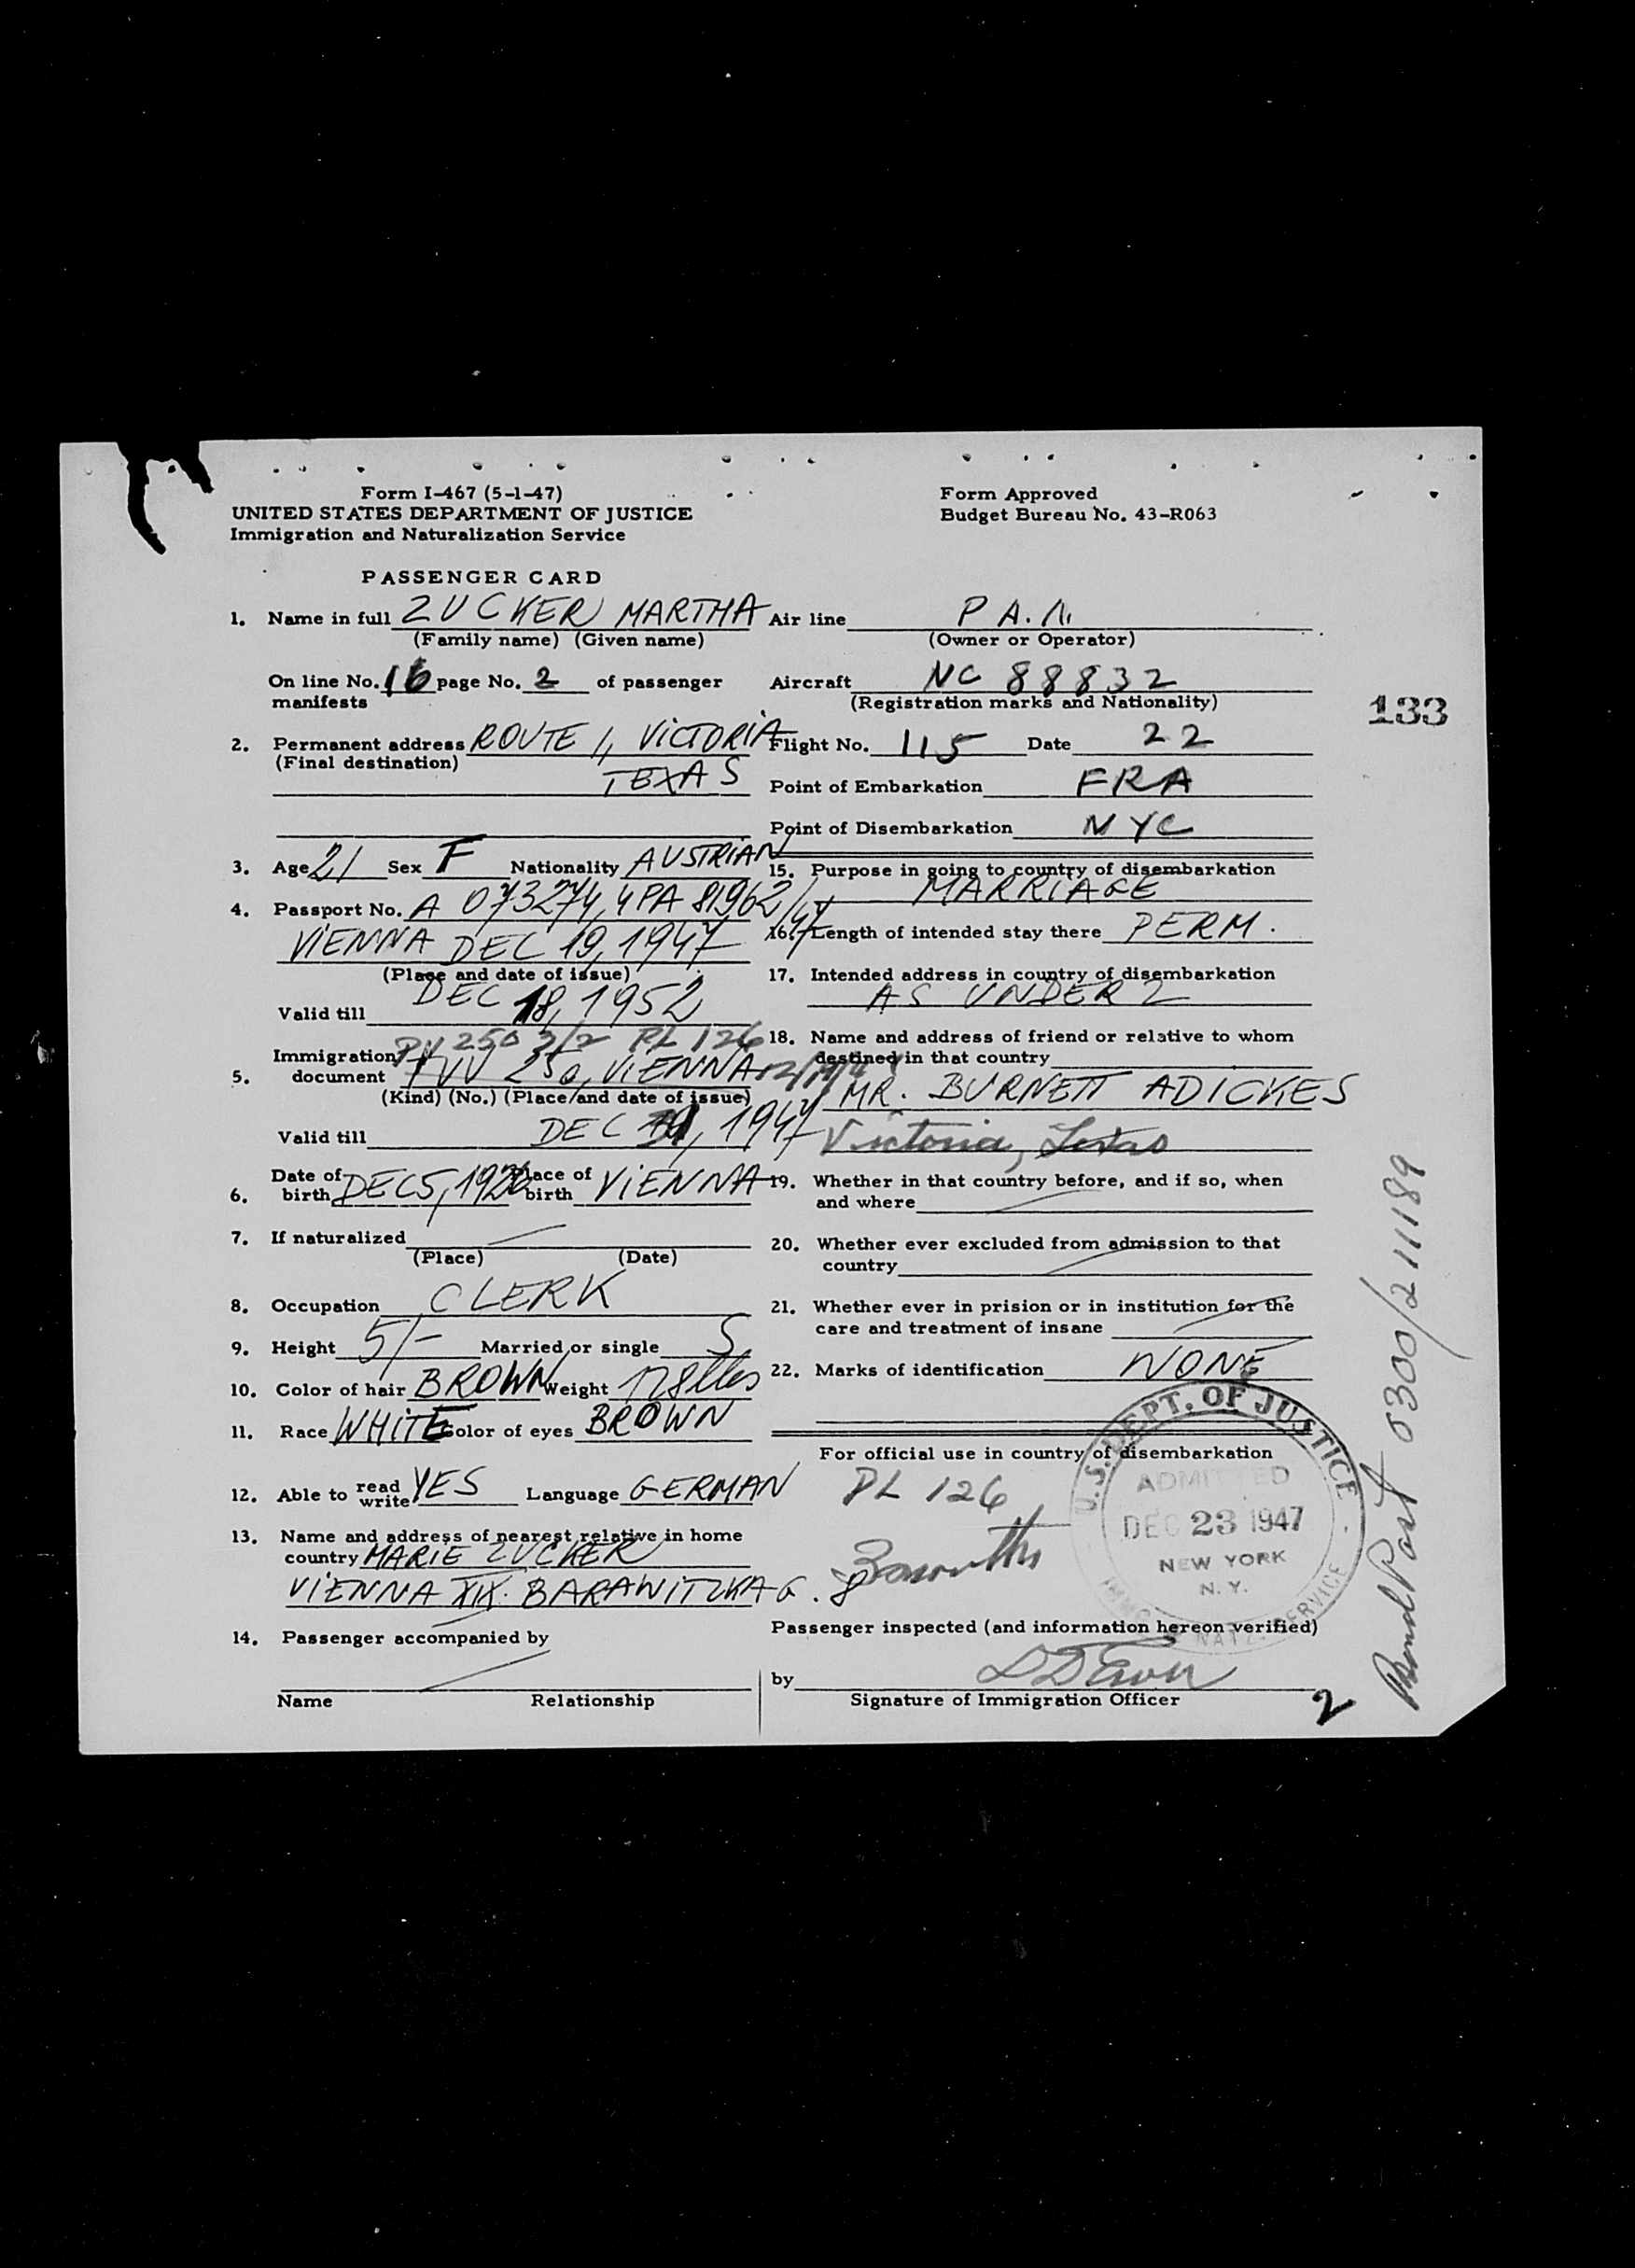 Form I-467 (5-1-47)
UNITED STATES DEPARTMENT OF JUSTICE
Immigration and Naturalization Service
Form Approved
Budget Bureau No. 43-R063
PASSENGER CARD
1. Name in full ZUCKER MARTHA
(Family name) (Given name)
On line No. 16 page No. 2 of passenger
manifests
2. Permanent address ROUTE 1, VICTORIA
(Final destination)
TEXAS
3. Age 21 Sex F Nationality AUSTRIAN
4. Passport No. A 073274, 4PA 81962/47
VIENNA DEC 19, 1947
(Place and date of issue)
Valid till DEC 18, 1952
PL 126
5. Immigration document 250, VIENNA
(Kind) (No.) (Place and date of issue)
Valid till DEC 1947
6. Date of birth DEC 5, 1926 Place of birth VIENNA
7. If naturalized
(Place) (Date)
8. Occupation CLERK
9. Height 5/- Married or single S
10. Color of hair BROWN Weight 128 lbs
11. Race WHITE Color of eyes BROWN
12. Able to read write YES Language GERMAN
13. Name and address of nearest relative in home
country MARIE ZUCKER
VIENNA XIX. BARAWITZKA G. 8
14. Passenger accompanied by
Name Relationship
Air line P.A.
(Owner or Operator)
Aircraft NC 88832
(Registration marks and Nationality)
133
Flight No. 115 Date 22
Point of Embarkation FRA
Point of Disembarkation NYC
15. Purpose in going to country of disembarkation
MARRIAGE
16. Length of intended stay there PERM.
17. Intended address in country of disembarkation
AS UNDER 2
18. Name and address of friend or relative to whom
destined in that country
MR. BURNETT ADICKES
Victoria, Texas
19. Whether in that country before, and if so, when
and where
20. Whether ever excluded from admission to that
country
21. Whether ever in prision or in institution for the
care and treatment of insane
22. Marks of identification NONE
For official use in country of disembarkation
PL 126
U.S. DEPT. OF JUSTICE
ADMITTED
DEC 23 1947
NEW YORK
N.Y.
IMMIG. NATZ. SERVICE
Passenger inspected (and information hereon verified)
by
Signature of Immigration Officer
2
Bond Post 0300/211189